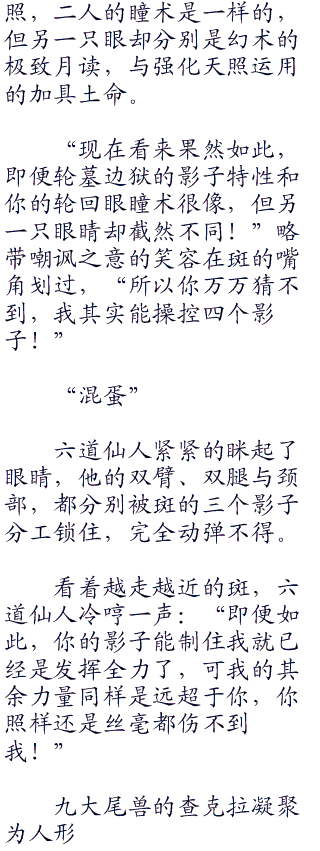 照，二人的瞳术是一样的，
但另一只眼却分别是幻术的
极致月读，与强化天照运用
的加具土命。
“现在看来果然如此，
即便轮墓边狱的影子特性和
你的轮回眼瞳术很像，但另
一只眼睛却截然不同！”略
带嘲讽之意的笑容在斑的嘴
角划过，“所以你万万猜不
到，我其实能操控四个影
子！”
“混蛋”
六道仙人紧紧的眯起了
眼睛，他的双臂、双腿与颈
部，都分别被斑的三个影子
分工锁住，完全动弹不得。
看着越走越近的斑，六
道仙人冷哼一声：“即便如
此，你的影子能制住我就已
经是发挥全力了，可我的其
余力量同样是远超于你，你
照样还是丝毫都伤不到
我！”
九大尾兽的查克拉凝聚
为人形